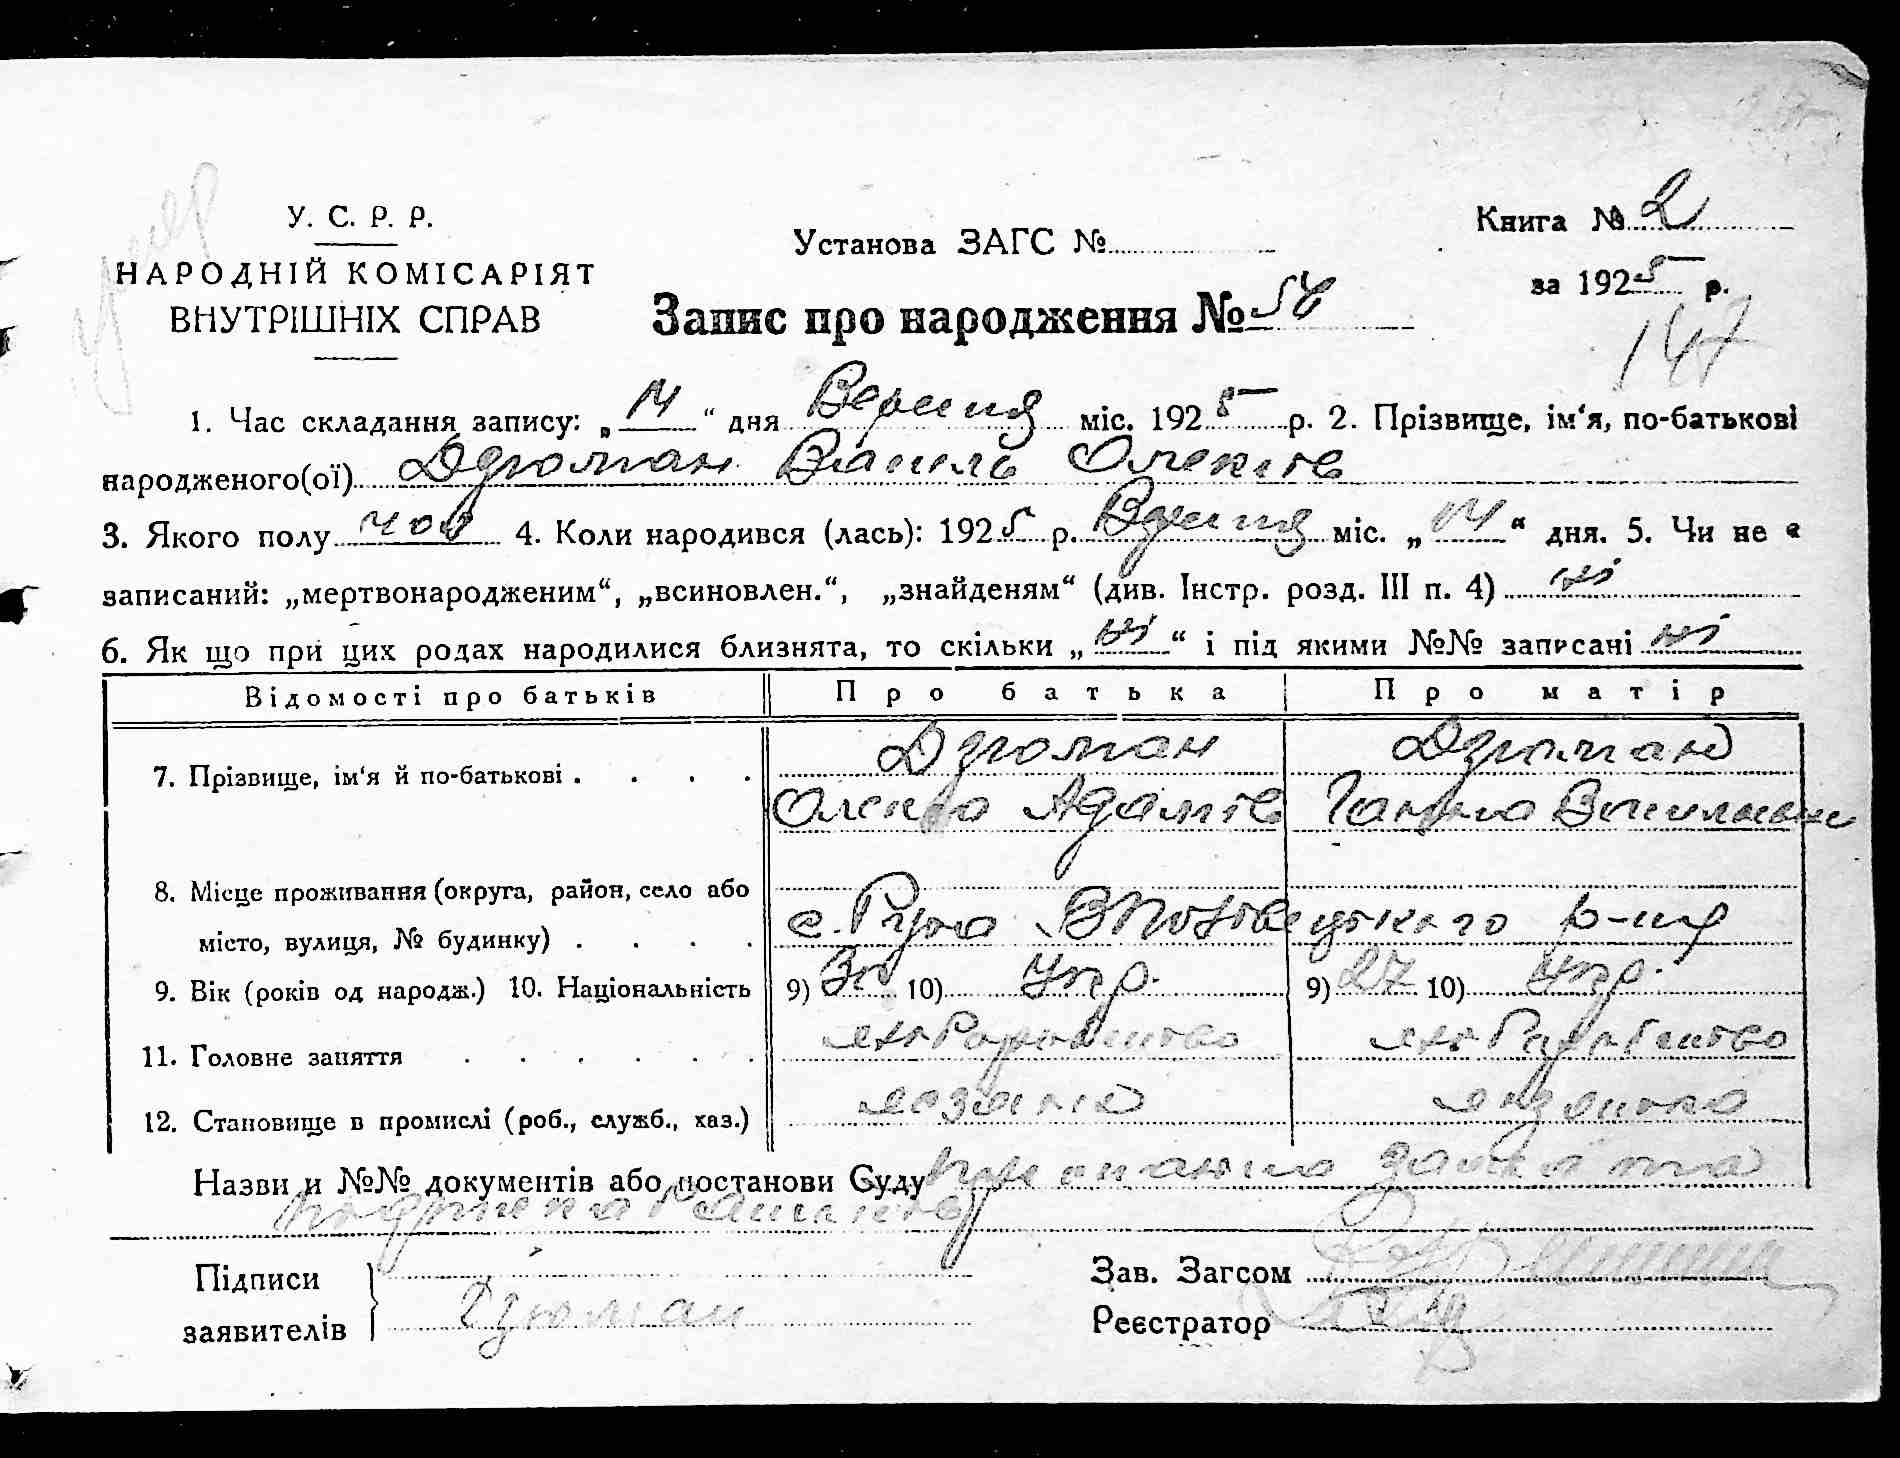 У. С. Р. Р.
НАРОДНІЙ КОМІСАРІЯТ
ВНУТРІШНІХ СПРАВ
Установа ЗАГС №
Книга № 2
за 1925 р.
Запис про народження №
147
1. Час складання запису: „14“ дня Вересня міс. 1925 р. 2. Прізвище, ім‘я, по-батькові
народженого(ої) Дзюман Василь Олексіїв
3. Якого полу чол 4. Коли народився (лась): 1925 р. Вересня міс. „14“ дня. 5. Чи не є
записаний: „мертвонародженим“, „всиновлен.“, „знайденям“ (див. Інстр. розд. III п. 4) ні
6. Як що при цих родах народилися близнята, то скільки „ні“ і під якими №№ записані ні
Відомості про батьків Про батька Про матір
7. Прізвище, ім‘я й по-батькові . . . . Дзюман Дзюман
Олекса Адамів Ганна Василівна
8. Місце проживання (округа, район, село або
місто, вулиця, № будинку) . . . . с. р-ну
9. Вік (років од народж.) 10. Національність 9) 30 10) Укр. 9) 27 10) Укр.
11. Головне заняття . . . . . .
12. Становище в промислі (роб., служб., хаз.) хазяїн
Назви и №№ документів або постанови Суду
Підписи
заявителів Дзюман
Зав. Загсом
Реєстратор